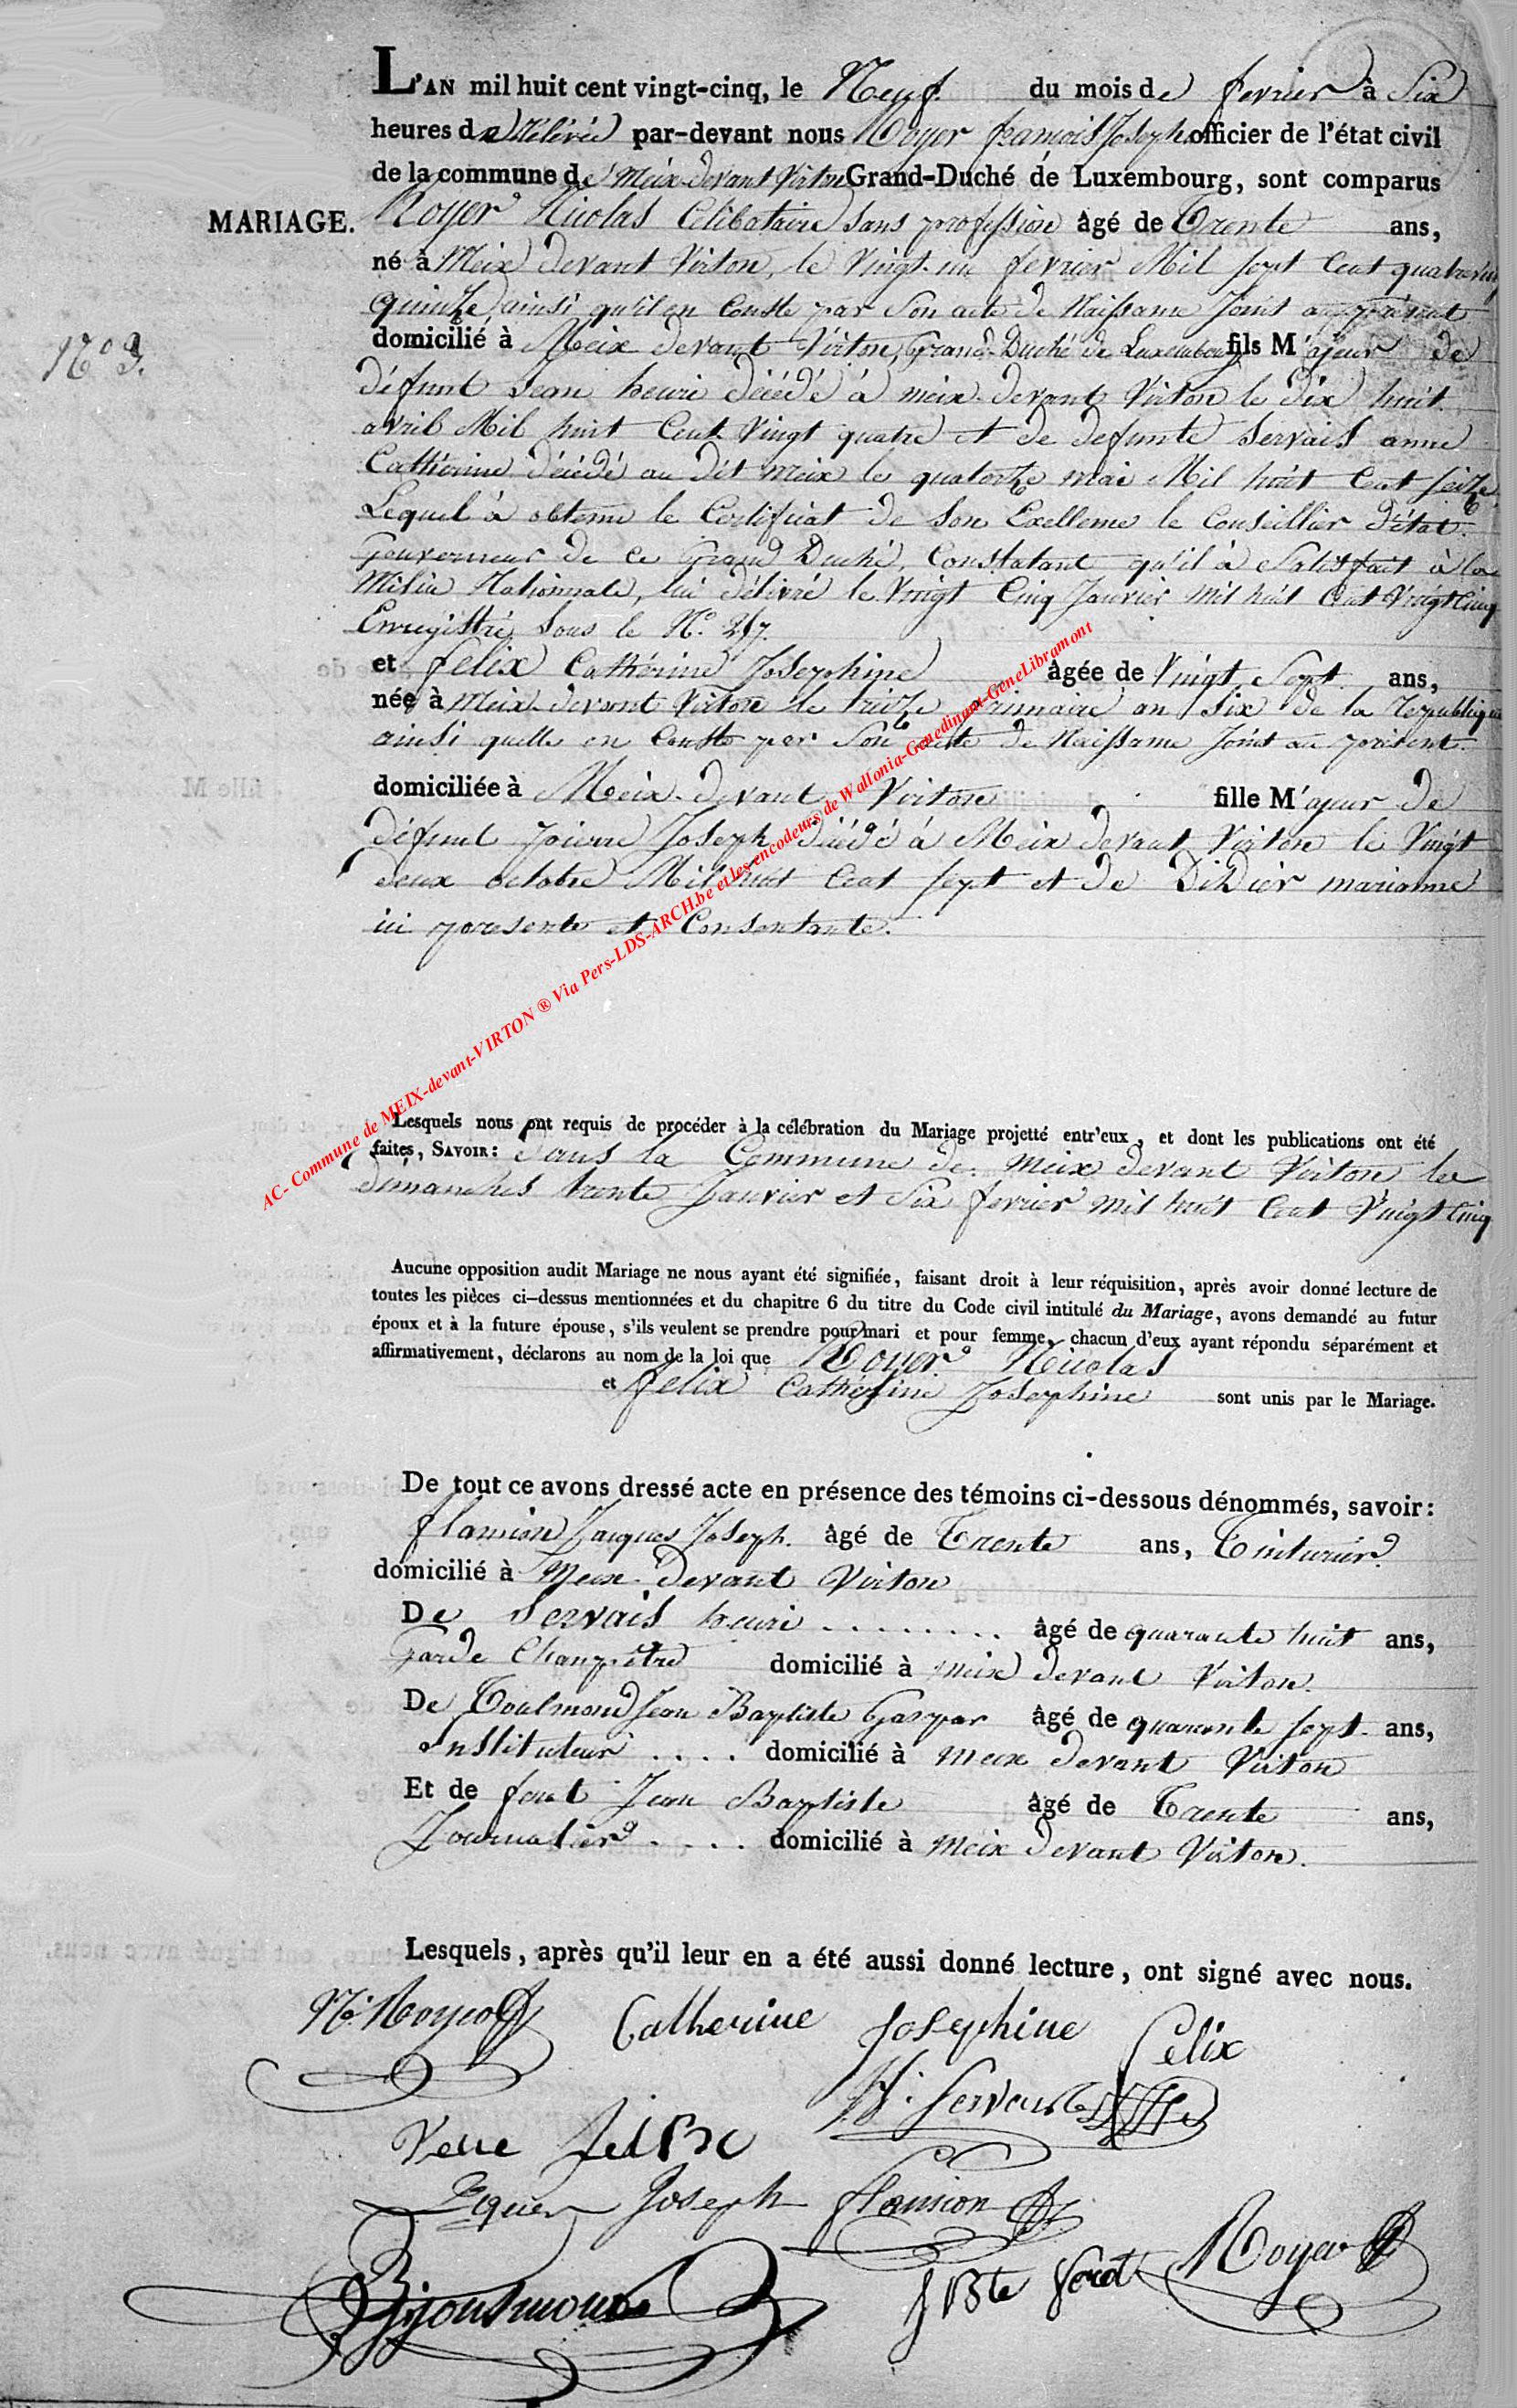 L'AN mil huit cent vingt-cinq, le Neuf du mois de fevrier à Six
heures de Rélévé par-devant nous Royer françois Joseph officier de l'état civil
de la commune de Meix-devant Virton Grand-Duché de Luxembourg, sont comparus
MARIAGE. Royer Nicolas Célibataire sans profession âgé de Trente ans,
né à Meix devant Virton, le Vingt-un fevrier Mil sept Cent quatrevingt
quinze, ainsi qu'il en Conste par Son acte de Naissance Joint au présent
N° 3.
domicilié à Meix devant Virton, Grand-Duché de Luxembourg fils Majeur de
défunt Jean henri décédé à meix-devant Virton le dix huit
avril Mil huit Cent Vingt quatre et de defunte Servais anne
Cathérine décédé au dit meix le quatorze mai Mil huit Cent seize
Lequel à obtenu le Certificat de Son Exellence le Conseillier d'état
Gouverneur de ce Grand Duché, Constatant qu'il à Satisfait à la
Milice Nationnale, lui délivré le Vingt Cinq Janvier mil huit Cent Vingt Cinq
Enregistré Sous le N°. 217.
et felix Cathérine Joséphine âgée de Vingt Sept ans,
née à Meix-devant Virton le treize frimaire an Six de la Republique
ainsi quelle en Conste par Son acte de Naissance Joint au présent.
domiciliée à Meix-devant Virton fille Majeur de
défunt pierre Joseph décédé à Meix devant Virton le Vingt
deux octobre Mil huit Cent sept et de Didier marianne
ici présente et Consentante.
Lesquels nous ont requis de procéder à la célébration du Mariage projetté entr'eux, et dont les publications ont été
faites, SAVOIR: dans la Commune de Meix devant Virton les
dimanches trente Janvier et Six fevrier mil huit Cent Vingt Cinq
Aucune opposition audit Mariage ne nous ayant été signifiée, faisant droit à leur réquisition, après avoir donné lecture de
toutes les pièces ci-dessus mentionnées et du chapitre 6 du titre du Code civil intitulé du Mariage, avons demandé au futur
époux et à la future épouse, s'ils veulent se prendre pour mari et pour femme, chacun d'eux ayant répondu séparément et
affirmativement, déclarons au nom de la loi que Royer Nicolas
et felix Cathérine Joséphine sont unis par le Mariage.
De tout ce avons dressé acte en présence des témoins ci-dessous dénommés, savoir:
flamion Jacques Joseph. âgé de Trente ans, Teinturier
domicilié à Meix-devant Virton
De Servais henri ........ âgé de quarante huit ans,
Garde Champêtre domicilié à meix devant Virton.
De Toulmond Jean Baptiste Gaspar âgé de quarante sept ans,
Instituteur .... domicilié à meix devant Virton
Et de foret Jean Baptiste âgé de Trente ans,
Journalier .... domicilié à meix devant Virton.
Lesquels, après qu'il leur en a été aussi donné lecture, ont signé avec nous.
N. Royer Catherine Josephine felix
H. Servais
Veve felix
Jques Joseph flamion
Toulmond J Bte foret Royer
AC- Commune de MEIX-devant-VIRTON ® Via Pers-LDS-ARCH.be et les encodeurs de Wallonia-Genedinant-GeneLibramont